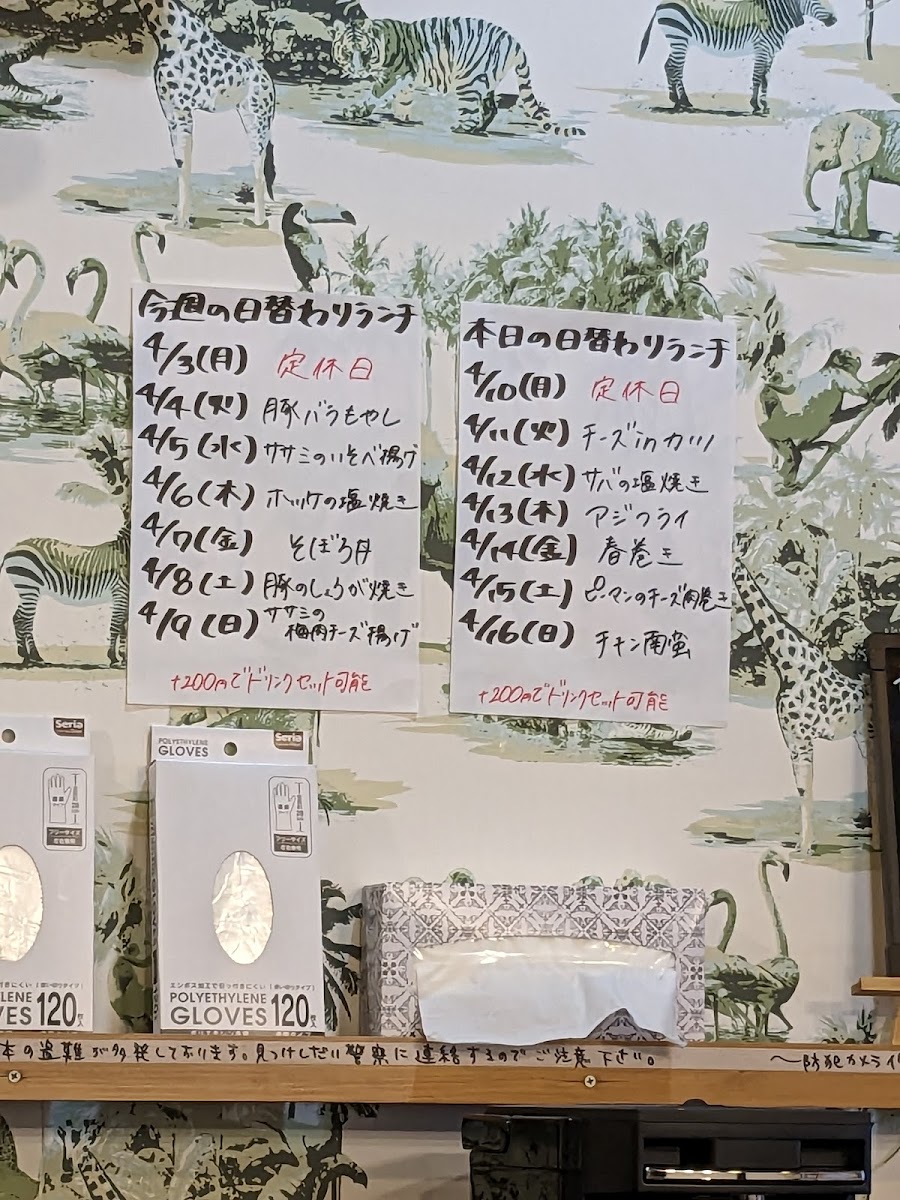 今週の日替わりランチ
4/3(月) 定休日
4/4(火) 豚バラもやし
4/5(水) ササミのいそべ揚げ
4/6(木) ホッケの塩焼き
4/7(金) そぼろ丼
4/8(土) 豚のしょうが焼き
4/9(日) ササミの
梅肉チーズ揚げ
+200円でドリンクセット可能
本日の日替わりランチ
4/10(月) 定休日
4/11(火) チーズinカツ
4/12(水) サバの塩焼き
4/13(木) アジフライ
4/14(金) 春巻き
4/15(土) ピーマンのチーズ肉巻き
4/16(日) チキン南蛮
+200円でドリンクセット可能
Seria
フリーサイズ
LENE
VES 120
Seria
POLYETHYLENE
GLOVES
フリーサイズ
左右兼用
エンボス加工で引っ付きにくい
POLYETHYLENE
GLOVES 120枚入
本の盗難が多発しております。見つけしだい警察に連絡するのでご注意下さい。
〜防犯カメラ